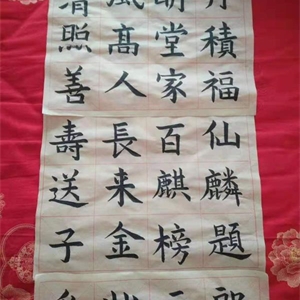 清風明月
照高堂積
善人家福
壽長百仙
送来麒麟
子金榜題